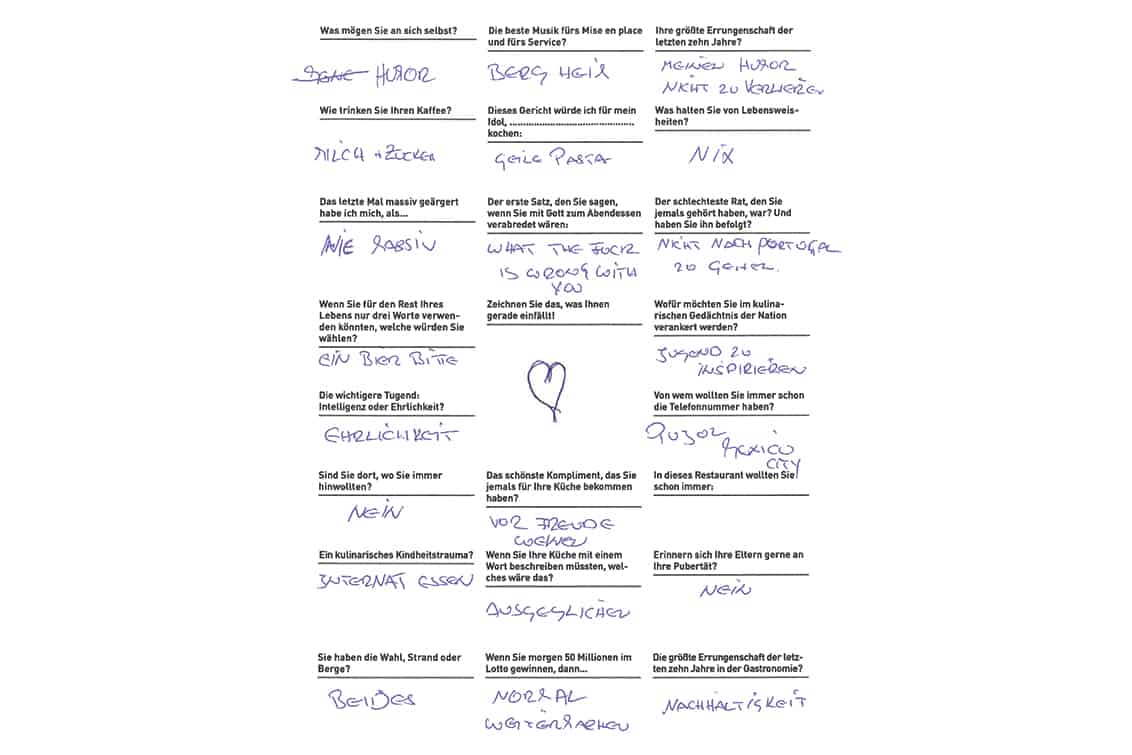 Was mögen Sie an sich selbst?
HUMOR
Die beste Musik fürs Mise en place
und fürs Service?
BERG HEIL
Ihre größte Errungenschaft der
letzten zehn Jahre?
MEINEN HUMOR
NICHT ZU VERLIEREN
Wie trinken Sie Ihren Kaffee?
MILCH + ZUCKER
Dieses Gericht würde ich für mein
Idol, ............................................
kochen:
GEILE PASTA
Was halten Sie von Lebensweis-
heiten?
NIX
Das letzte Mal massiv geärgert
habe ich mich, als...
NIE MASSIV
Der erste Satz, den Sie sagen,
wenn Sie mit Gott zum Abendessen
verabredet wären:
WHAT THE FUCK
IS WRONG WITH
YOU
Der schlechteste Rat, den Sie
jemals gehört haben, war? Und
haben Sie ihn befolgt?
NICHT NACH PORTUGAL
ZU GEHEN.
Wenn Sie für den Rest Ihres
Lebens nur drei Worte verwen-
den könnten, welche würden Sie
wählen?
EIN BIER BITTE
Zeichnen Sie das, was Ihnen
gerade einfällt!
Wofür möchten Sie im kulina-
rischen Gedächtnis der Nation
verankert werden?
JUGEND ZU
INSPIRIEREN
Die wichtigere Tugend:
Intelligenz oder Ehrlichkeit?
EHRLICHKEIT
Von wem wollten Sie immer schon
die Telefonnummer haben?
PUJOL
MEXICO
CITY
Sind Sie dort, wo Sie immer
hinwollten?
NEIN
Das schönste Kompliment, das Sie
jemals für Ihre Küche bekommen
haben?
VOR FREUDE
WEINEN
In dieses Restaurant wollten Sie
schon immer:
Ein kulinarisches Kindheitstrauma?
INTERNAT ESSEN
Wenn Sie Ihre Küche mit einem
Wort beschreiben müssten, wel-
ches wäre das?
AUSGEGLICHEN
Erinnern sich Ihre Eltern gerne an
Ihre Pubertät?
NEIN
Sie haben die Wahl, Strand oder
Berge?
BEIDES
Wenn Sie morgen 50 Millionen im
Lotto gewinnen, dann...
NORMAL
WEITERMACHEN
Die größte Errungenschaft der letz-
ten zehn Jahre in der Gastronomie?
NACHHALTIGKEIT